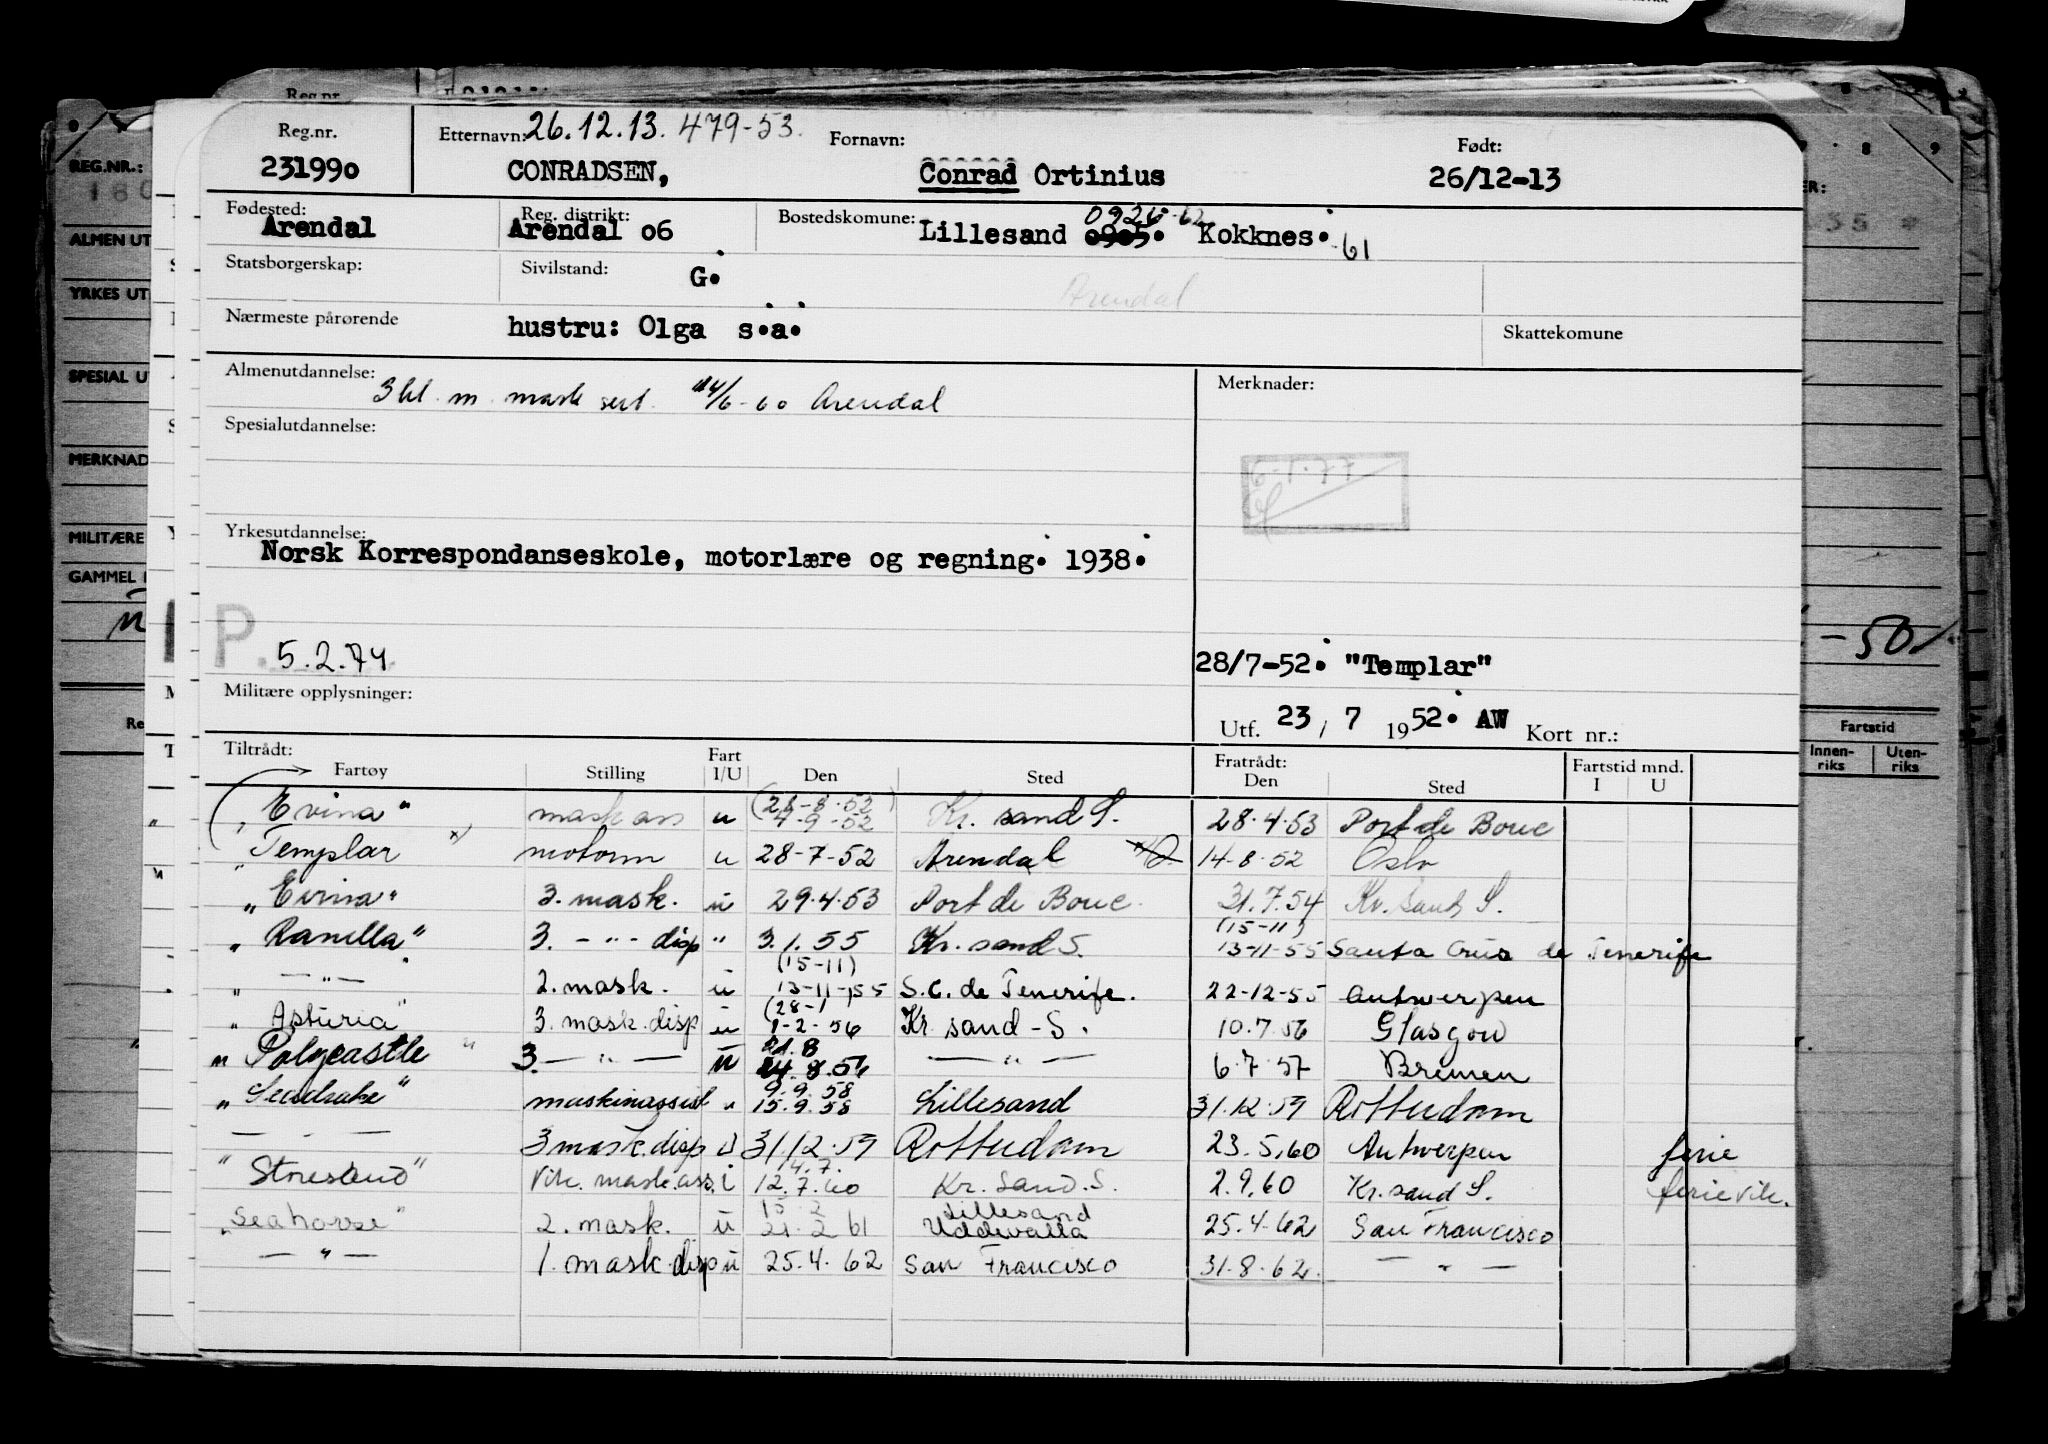 Reg.nr. Etternavn: 26.12.13. 479-53. Fornavn: Født:
231990 CONRADSEN, Conrad Ortinius 26/12-13
Fødested: Reg. distrikt: Bostedskomune: 0926-62
Arendal Arendal o6 Lillesand Kokknes. -61
Statsborgerskap: Sivilstand: G. Arendal
Nærmeste pårørende hustru: Olga s.a. Skattekomune
Almenutdannelse: Merknader:
3 kl. m. mask sert. 14/6-60 Arendal
Spesialutdannelse:
6-1-77
Yrkesutdannelse:
Norsk Korrespondanseskole, motorlære og regning. 1938.
P. 5.2.74 28/7-52. "Templar"
Militære opplysninger:
Utf. 23 / 7 1952. AW Kort nr.:
Tiltrådt: Fart Fratrådt: Fartstid mnd.
Fartøy Stilling I/U Den Sted Den Sted I U
"Evina" mask ass u 4-9-52 Kr. sand S. 28.4.53 Port de Bouc
"Templar x) motorm u 28-7-52 Arendal 14-8-52 Oslo
"Evina" 3. mask. u 29.4.53 Port de Bouc. 31.7.54 Kr. sand S.
(15-11)
"Ranella" 3. -"- disp " 3.1.55 Kr. sand S. 13-11-55 Santa Cruz de Tenerife
(15-11)
" -"- 2. mask. u 13-11-55 S.C. de Tenerife. 22-12-55 Antwerpen
(28-1
"Asturia" 3. mask. disp u 1-2-56 Kr. sand-S. 10.7.56 Glasgow
"Polycastle" 3. -"- u 8.56 -"- 6.7.57 Bremen
9.9.58
" maskinassist " 15.9.58 Lillesand 31.12.59 Rotterdam
- - - 3 mask. disp U 31/12.59 Rotterdam 23.5.60 Antwerpen ferie
14.7.
"Storesund" Vik. mask. ass. i 12.7.60 Kr. Sand. S. 2.9.60 Kr. sand S. ferievik.
15.2 Lillesand
"Seahorse" 2. mask. u 21.2 61 Uddevalla 25.4.62 San Francisco
-"- 1. mask. disp u 25.4.62 San Francisco 31.8.62. -"-
REG.NR.:
ALMEN UT
YRKES UT
SPESIAL U
MERKNAD
MILITÆRE
GAMMEL
-50
Fartstid
Innen-
riks
Uten-
riks